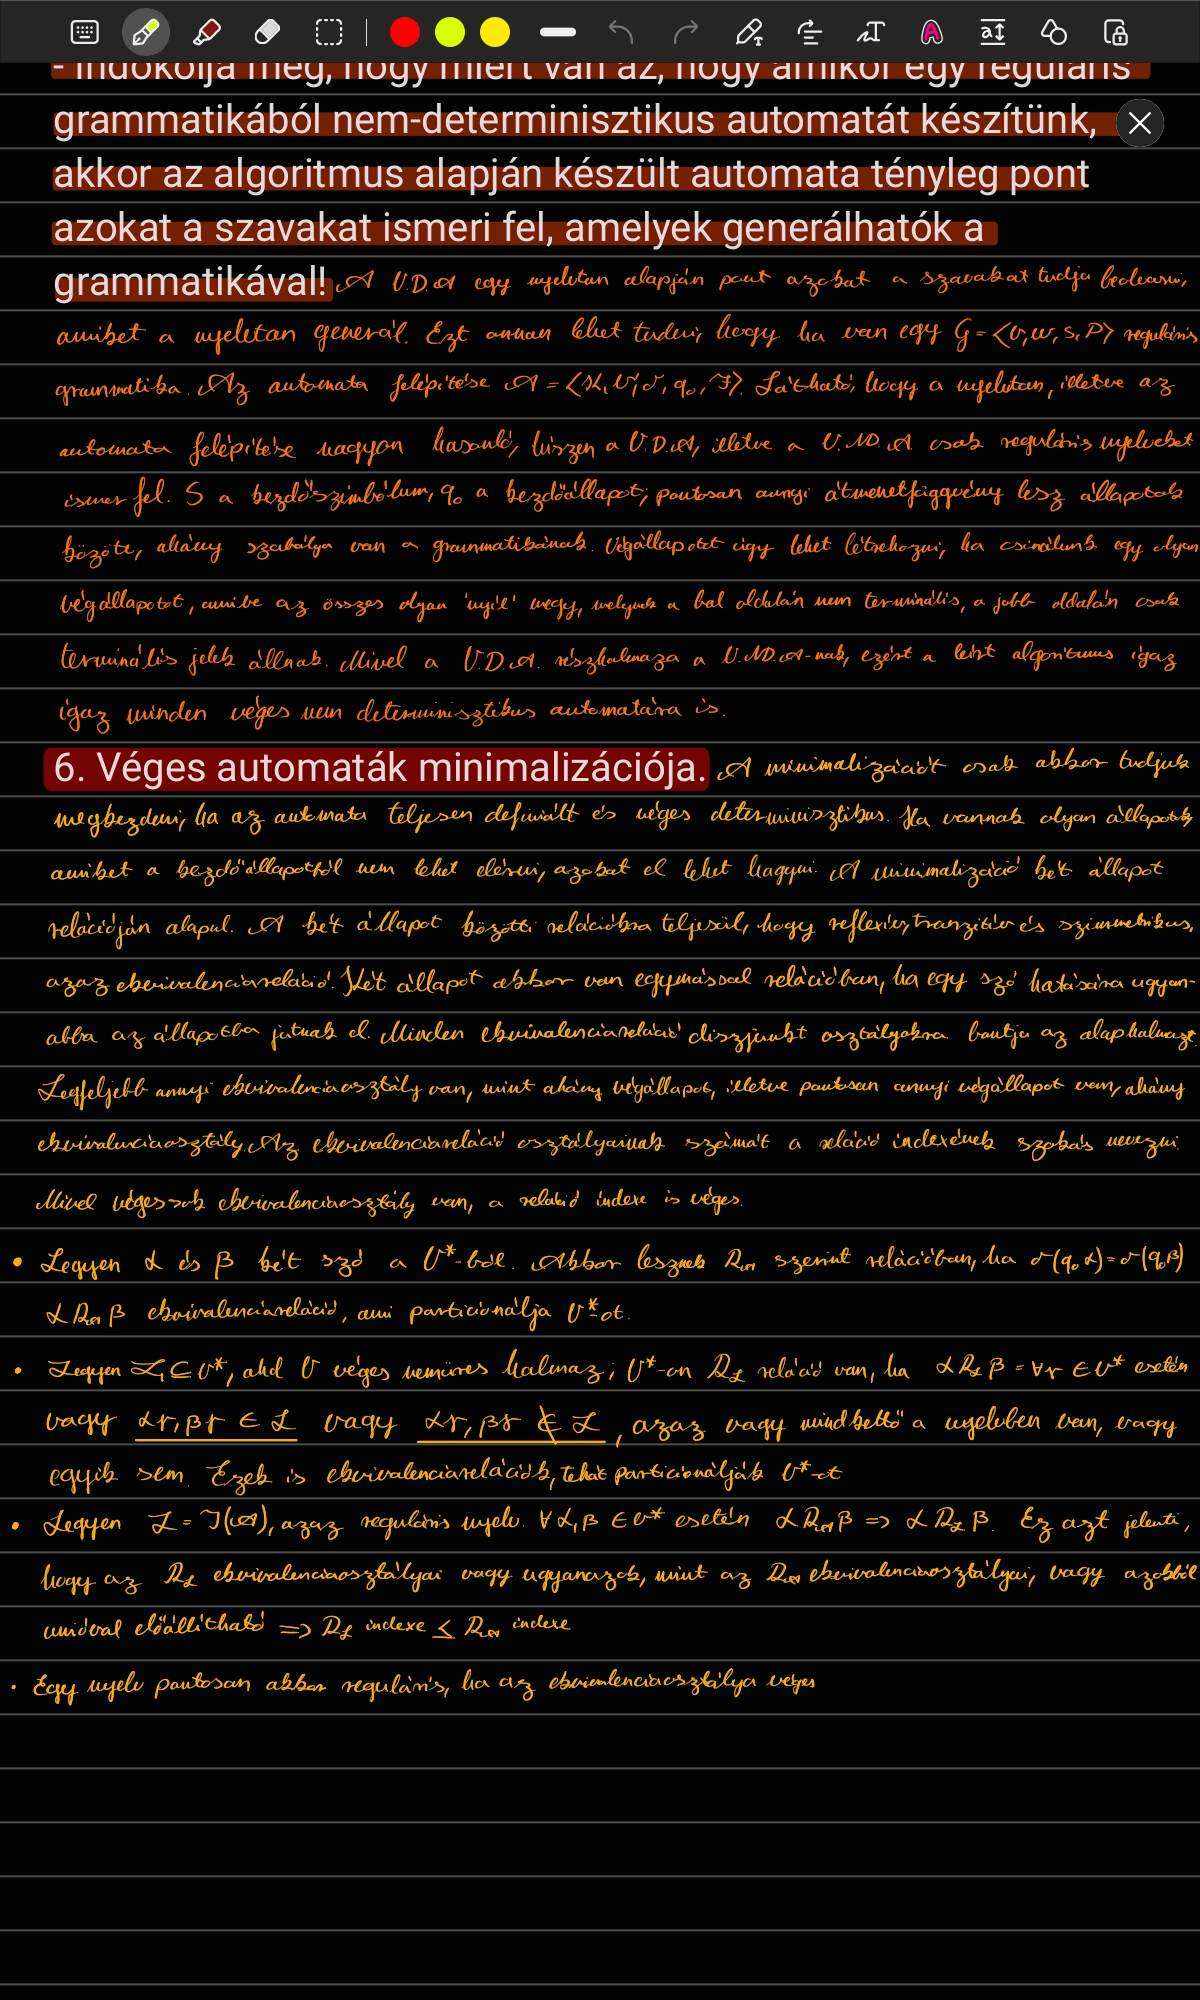 - Indokolja meg, hogy miért van az, hogy amikor egy reguláris
grammatikából nem-determinisztikus automatát készítünk,
akkor az algoritmus alapján készült automata tényleg pont
azokat a szavakat ismeri fel, amelyek generálhatók a
grammatikával! A V.D.A egy nyelvtan alapján pont azokat a szavakat tudja beolvasni,
amiket a nyelvtan generál. Ezt onnan lehet tudni, hogy ha van egy G = ⟨V, W, S, P⟩ reguláris
grammatika. Az automata felépítése A = ⟨K, V, δ, q₀, F⟩. Látható, hogy a nyelvtan, illetve az
automata felépítése nagyon hasonló, hiszen a V.D.A, illetve a V.ND.A csak reguláris nyelveket
ismer fel. S a kezdőszimbólum, q₀ a kezdőállapot, pontosan annyi átmenetfüggvény lesz állapotok
között, ahány szabálya van a grammatikának. Végállapotot úgy lehet létrehozni, ha csinálunk egy olyan
végállapotot, amibe az összes olyan 'nyíl' megy, melynek a bal oldalán nem terminális, a jobb oldalán csak
terminális jelek állnak. Mivel a V.D.A. részhalmaza a V.ND.A-nak, ezért a leírt algoritmus igaz
igaz minden véges nem determinisztikus automatára is.
6. Véges automaták minimalizációja. A minimalizációt csak akkor tudjuk
megkezdeni, ha az automata teljesen definiált és véges determinisztikus. Ha vannak olyan állapotok,
amiket a kezdőállapotból nem lehet elérni, azokat el lehet hagyni. A minimalizáció két állapot
relációján alapul. A két állapot közötti relációkra teljesül, hogy reflexív, tranzitív és szimmetrikus,
azaz ekvivalenciareláció. Két állapot akkor van egymással relációban, ha egy szó hatására ugyan-
abba az állapotba jutnak el. Minden ekvivalenciareláció diszjunkt osztályokra bontja az alaphalmazt.
Legfeljebb annyi ekvivalenciaosztály van, mint ahány végállapot, illetve pontosan annyi végállapot van, ahány
ekvivalenciaosztály. Az ekvivalenciareláció osztályainak számát a reláció indexének szokás nevezni.
Mivel véges sok ekvivalenciaosztály van, a reláció indexe is véges.
• Legyen α és β két szó a V*-ból. Akkor lesznek R_A szerint relációban, ha δ(q₀, α) = δ(q₀, β)
α R_A β ekvivalenciareláció, ami particionálja V*-ot.
• Legyen L ⊆ V*, ahol V véges nemüres halmaz, V*-on R_L reláció van, ha α R_L β = ∀γ ∈ V* esetén
vagy αγ, βγ ∈ L vagy αγ, βγ ∉ L, azaz vagy mindkettő a nyelvben van, vagy
egyik sem. Ezek is ekvivalenciarelációk, tehát particionálják V*-ot
• Legyen L = T(A), azaz reguláris nyelv. ∀α, β ∈ V* esetén α R_A β => α R_L β. Ez azt jelenti,
hogy az R_L ekvivalenciaosztályai vagy ugyanazok, mint az R_A ekvivalenciaosztályai, vagy azokból
unióval előállítható => R_L indexe ≤ R_A indexe
• Egy nyelv pontosan akkor reguláris, ha az ekvivalenciaosztálya véges